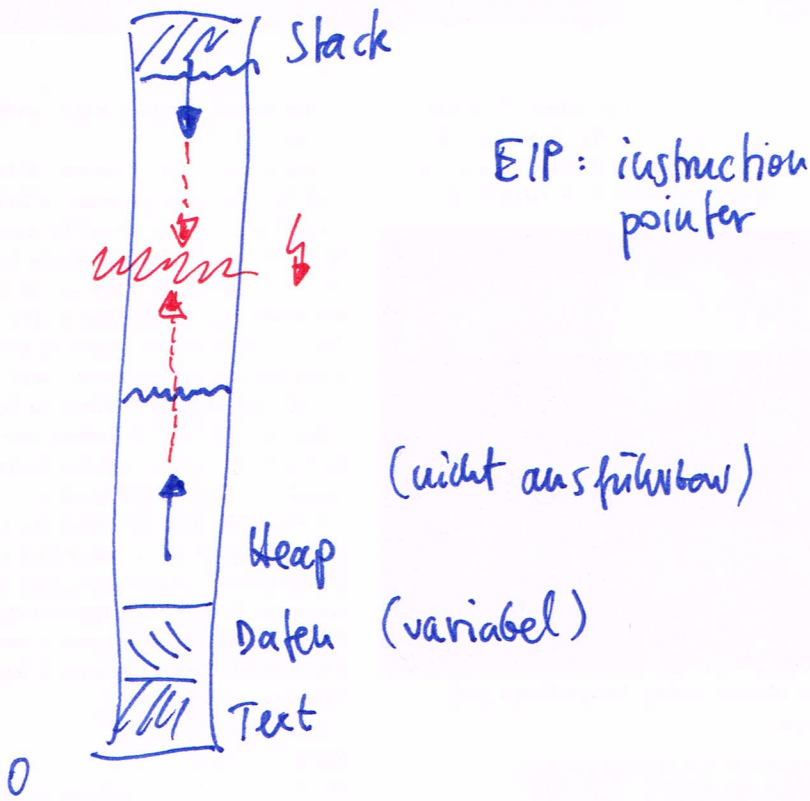 Stack
EIP: instruction
pointer
(nicht ausführbar)
Heap
Daten (variabel)
Text
0